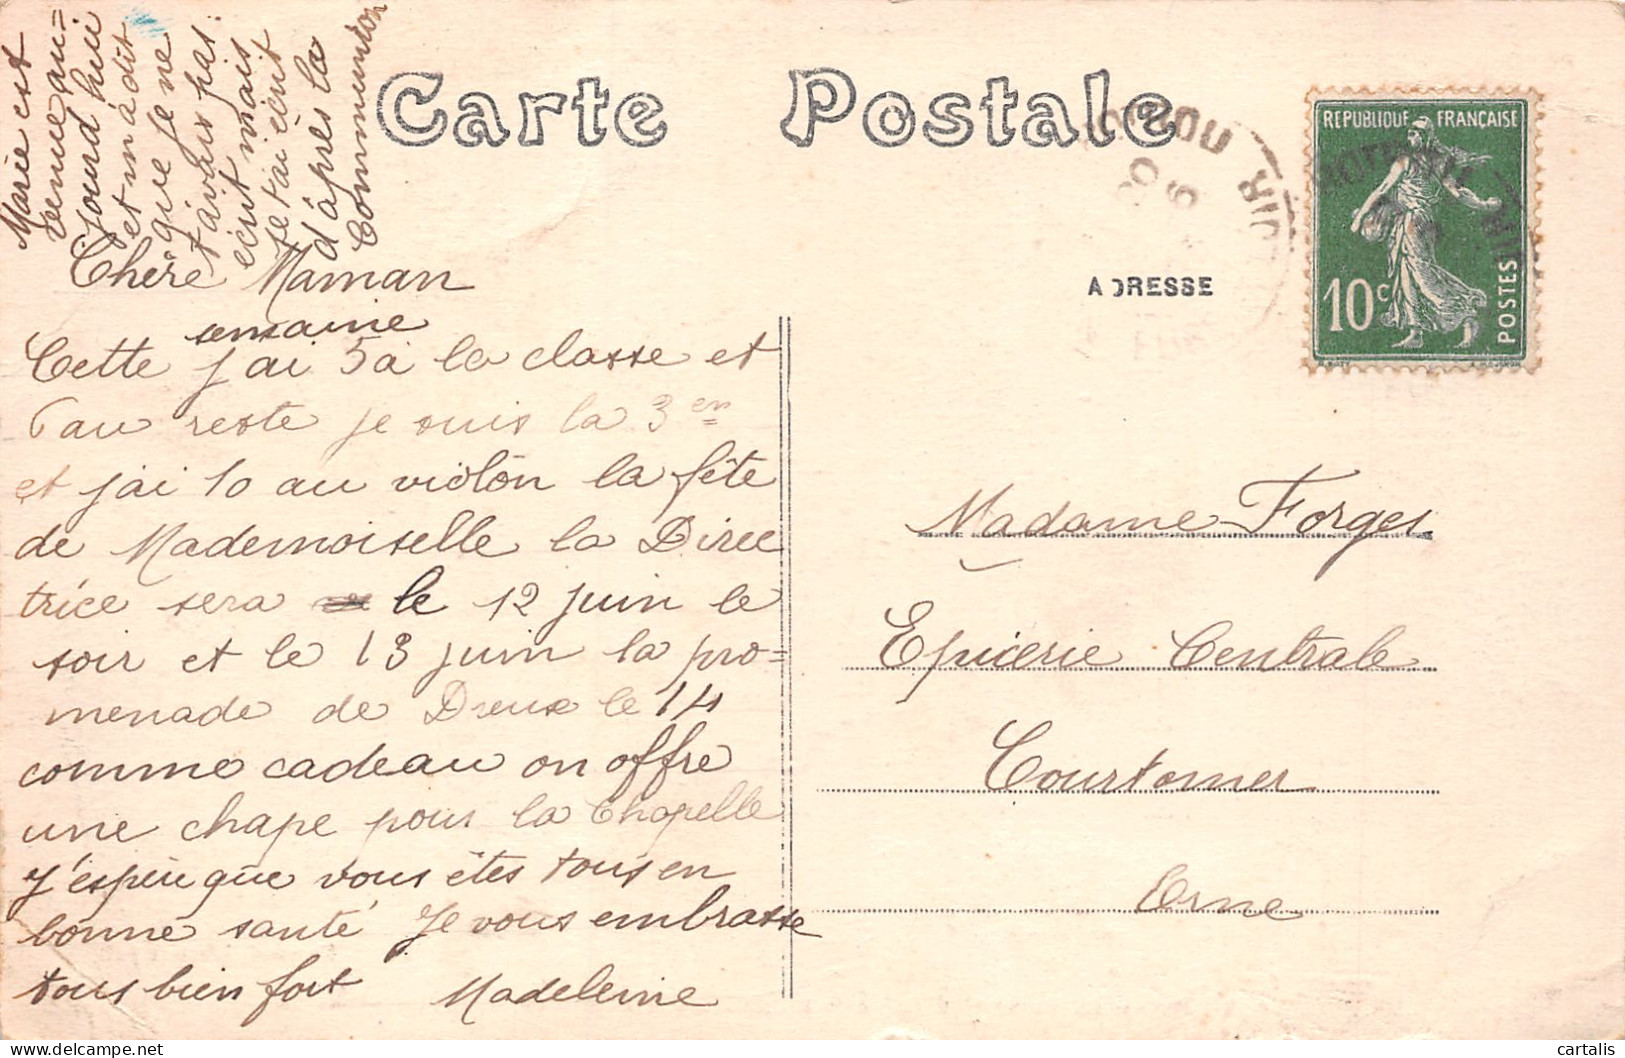 Marie est
venue au=
jourd'hui
et m'a dit
que je ne
t'avais pas
écrit mais
je t'ai écrit
d'après la
Communion
Carte Postale
REPUBLIQUE FRANÇAISE
10c
POSTES
ADRESSE
Chère Maman
semaine
Cette j'ai 5 à la classe et
6 au reste je suis la 3 em
et j'ai 10 au violon la fête
de Mademoiselle la Direc
trice sera le 12 juin le
soir et le 13 juin la pro=
menade de Dreux le 14
comme cadeau on offre
une chape pour la Chapelle
J'espère que vous êtes tous en
bonne santé Je vous embrasse
tous bien fort Madeleine
Madame Forges
Epicerie Centrale
Courtomer
Orne
cartalis